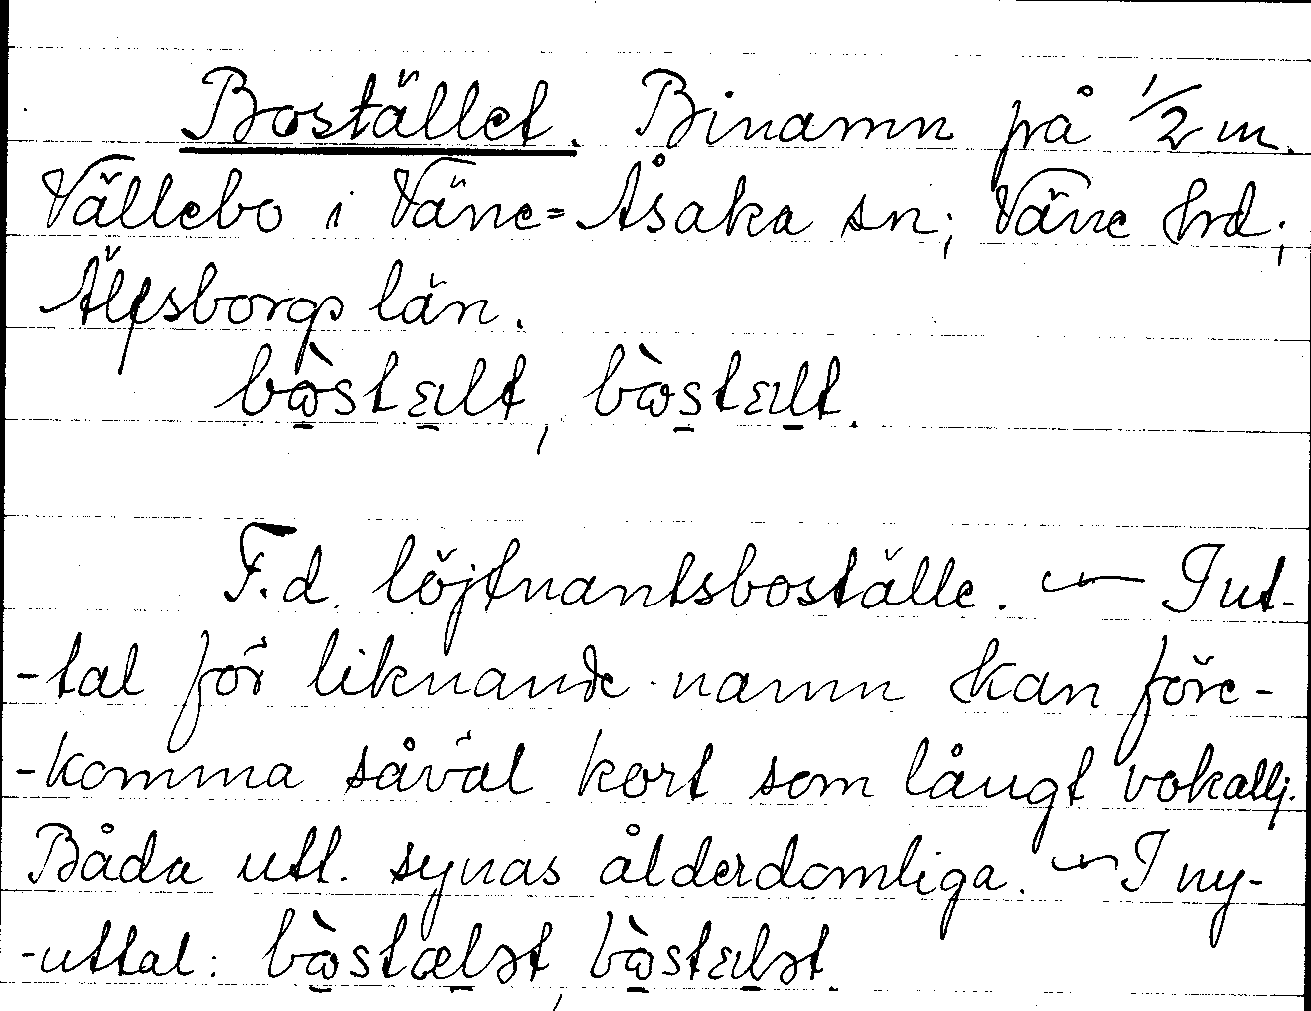 Bostället. Binamn på 1/2 m.
Vällebo i Väne-Åsaka sn; Väne hrd;
Älfsborgs län.
F.d. löjtnantsboställe. — I ut-
-tal för liknande namn kan före-
-komma såväl kort som långt vokallj.
Båda utt. synas ålderdomliga. — I ny-
-uttal: